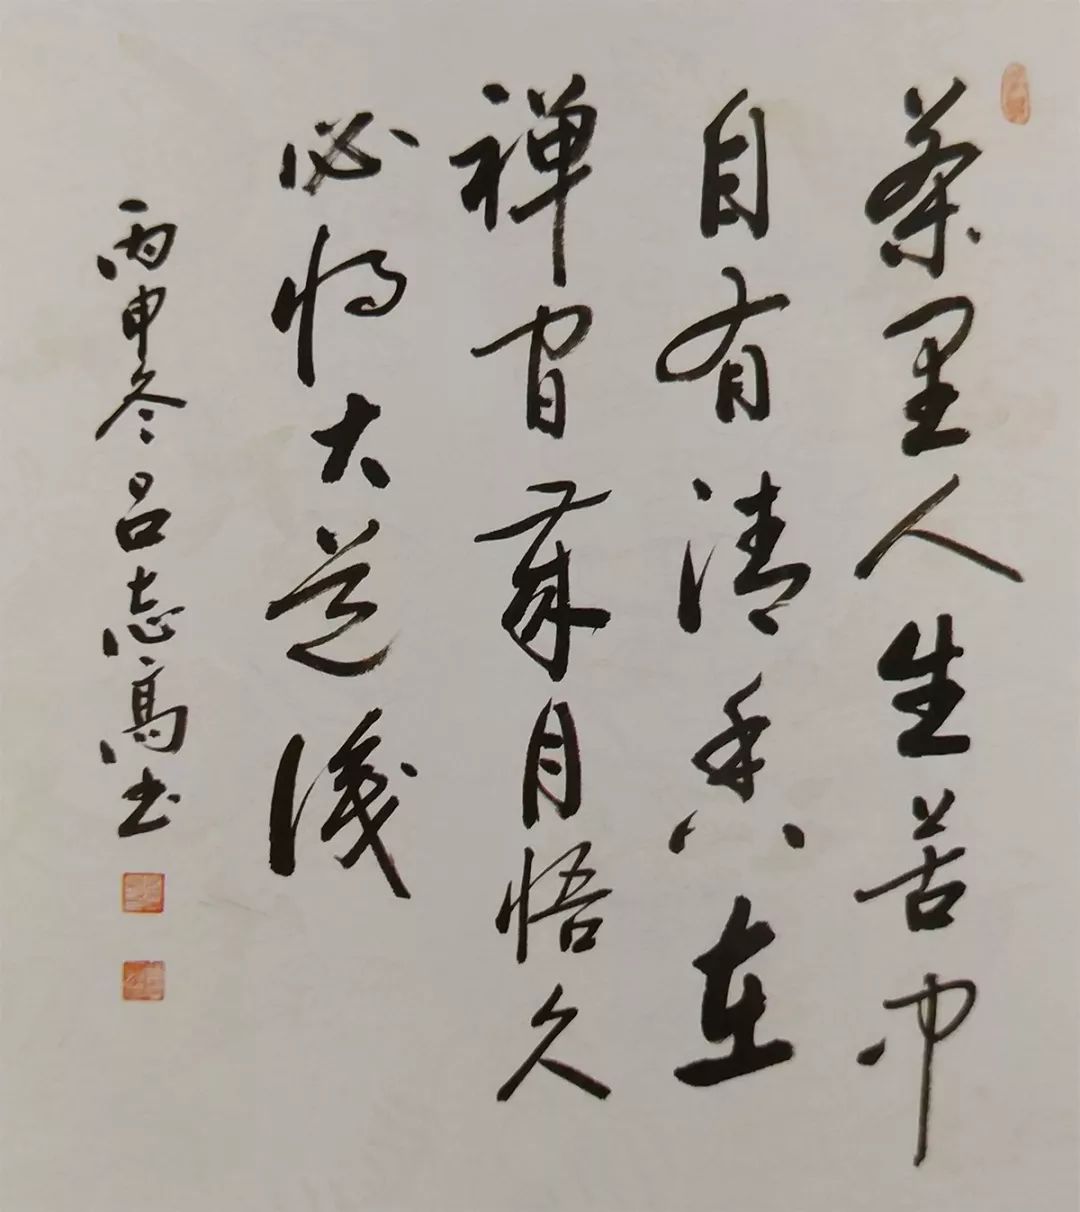 茶里人生苦中
自有清香在
禅歲月悟久
必將大道識
丙申冬吕志高书